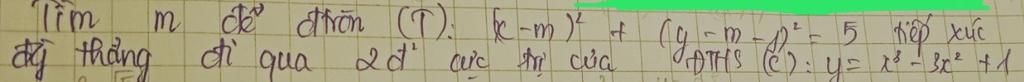 Tìm m để đtròn (T): (x-m)² + (y-m-1)² = 5 tiếp xúc
đg thẳng đi qua 2đ' cực trị của ĐTHS (C): y = x³ - 3x² + 1